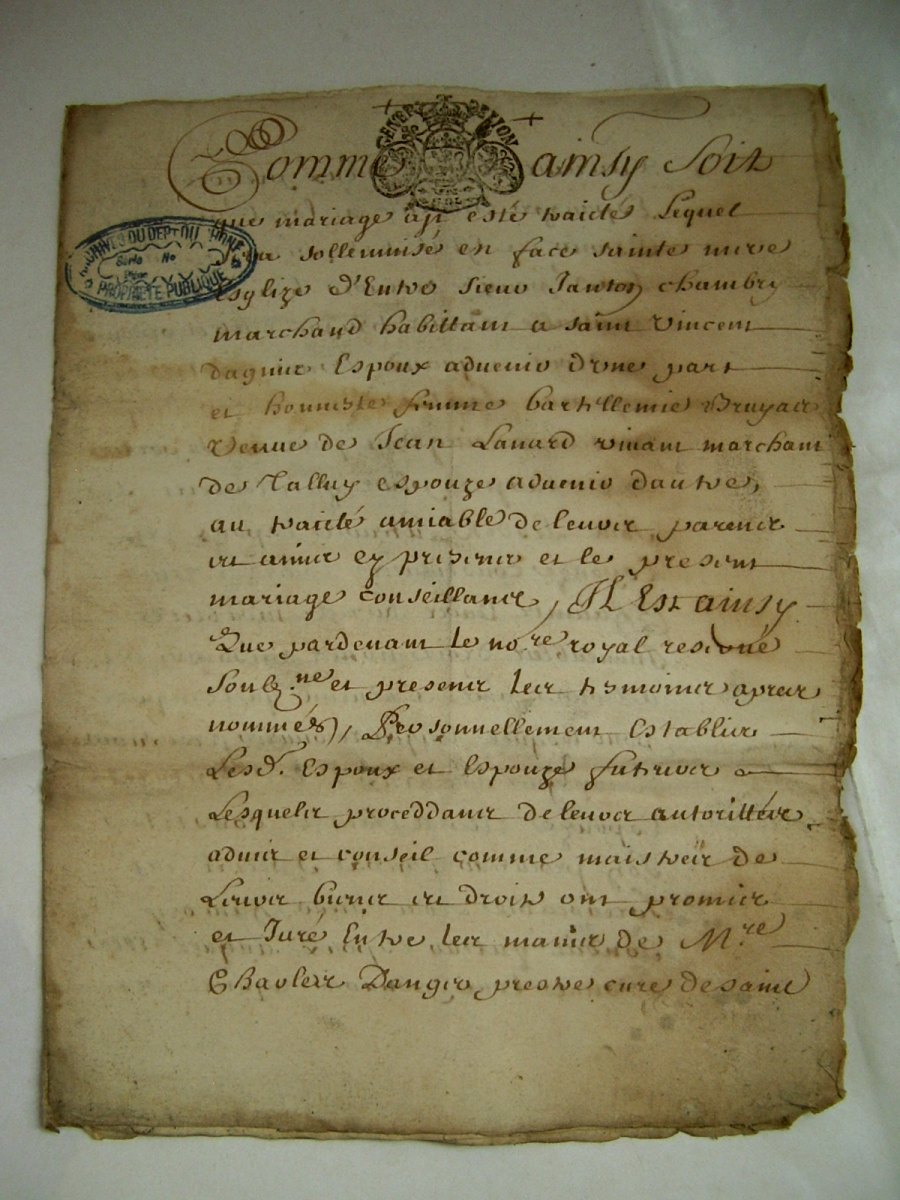 GENER DE LYON
Comme ainsy Soit
que mariage ayt esté traicté Lequel
sera sollemnisé en face sainte mere
Esglize d'Entre Sieur chambry
marchand habittant a saint vincent
dagnier Espoux aduenir d'une part
et honneste femme bartellemie Bruyas
Vefue de Jean Lanard viuant marchant
de Talluy espouze aduenir d'autre,
au traicté amiable de leurs parens
et amis ey presens et le present
mariage conseillans, Il Est ainsy
Que pardeuant le no.re royal reserué
Soub.ne et presens les tesmoins apres
nommés), Personnellement Establis
Lesd. Espoux et Espouze futeurs
Lesquels proceddans de leurs autorittés
aduis et conseil comme maistres de
Leurs biens et droits ont promis
et Juré Entre les mains de M.re
Charles Dangir prestre cure de saint
ARCHIVES DU DEPT DU RHONE
Serie No
PROPRIÉTÉ PUBLIQUE